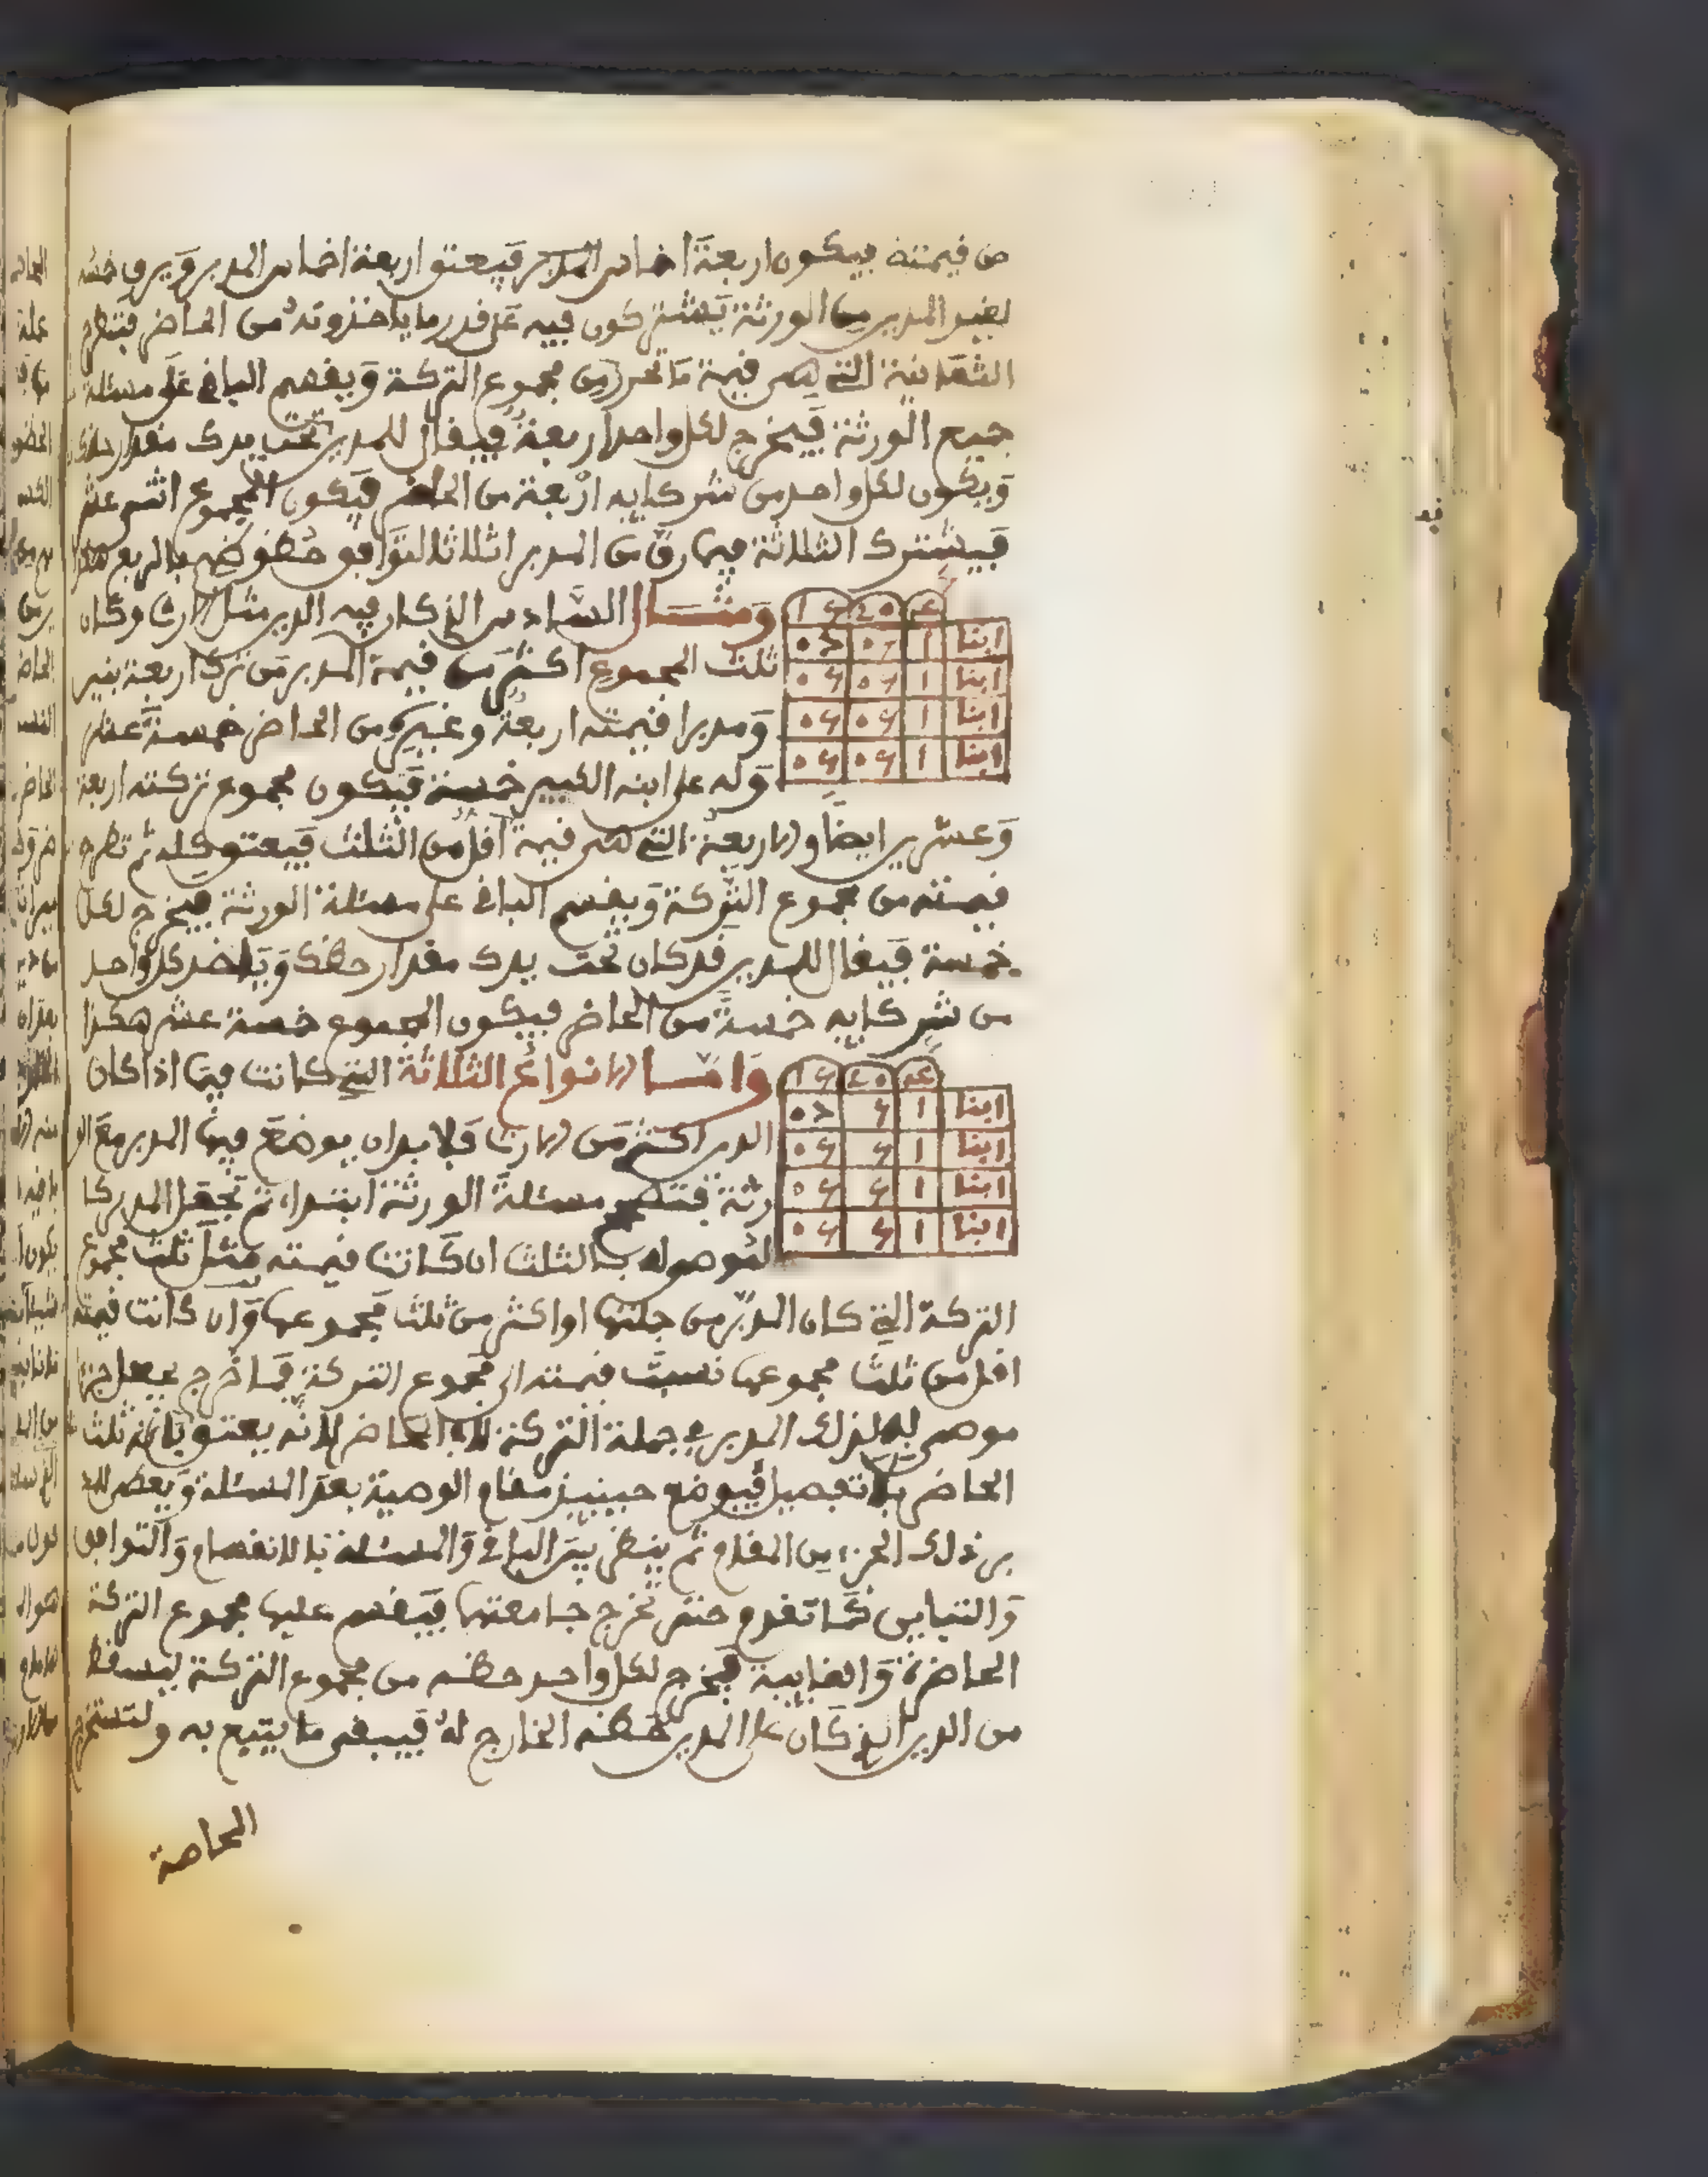 من قيمته فيكون اربعة اخماس المدبر فيعتق اربعة اخماس المدبر ويرق خمسه
لغير المدبر من الورثة يشتركون فيه على قدر ما ياخذونه من الحاضر فتطرح
الثمانية التي هي قيمة ما تحرر من مجموع التركة ويقسم الباقي على مسئلة
جميع الورثة فيخرج لكل واحد اربعة فيقال للمدين تحت يدك مقدار حظك
ويكون لكل واحد من شركايه اربعة من الحاضر فيكون المجموع اثني عشر
فيشترك الثلاثة فيما رق من المدبر اثلاثا لتوافق حظوظهم بالربع هكذا
ومثال السادس الذي كان فيه الدين مثل الارث وكان
ثلث المجموع اكثر من قيمة المدبر من ترك اربعة بنين
ومدبرا قيمته اربعة وغيره من الحاضر خمسة عشر
وله على ابنه الكبير خمسة فيكون مجموع تركته اربعة
وعشرين ايضا والاربعة التي هي قيمة اقل من الثلث فيعتق كله ثم تطرح
قيمته من مجموع التركة ويقسم الباقي على مسئلة الورثة فيخرج لكل
خمسة فيقال للمدين قد كان تحت يدك مقدار حظك وياخذ كل واحد
من شركايه خمسة من الحاضر فيكون المجموع خمسة عشر هكذا
واما الانواع الثلاثة التي كانت فيما اذا كان
الدين اكثر من الارث فلا بد ان يوضع فيها المدبر مع الو
رثة فتصحح مسئلة الورثة ابتداء ثم تجعل المدبر كا
لموصى له بالثلث ان كانت قيمته مثل ثلث مجموع
التركة التي كان المدبر من جملتها او اكثر من ثلث مجموعها وان كانت قيمته
اقل من ثلث مجموعها نسبت قيمته الى مجموع التركة فما خرج يجعل جزءا
موصى به لذلك المدبر في جملة التركة الحاضر لانه يعتق ثلث
الحاضر بلا تفصيل فيوضع حينيذ مقام الوصية بعد المسئلة ويعطى للمد
بر ذلك الجزء من المقام ثم ينظر بين الباقي والمسئلة بالانقسام والتوافق
والتباين كما تقدم حتى تخرج جامعتها فيقسم عليها مجموع التركة
الحاضرة والغايبة فيخرج لكل واحد حظه من مجموع التركة ليسقط
من الدين الذي كان على المدين حظه الخارج له فيبقى ما يتبع به ولتستخرج
المحاصة
ابنا ا
ابنا ا
ابنا ا
ابنا ا
ابنا ا
ابنا ا
ابنا ا
ابنا ا